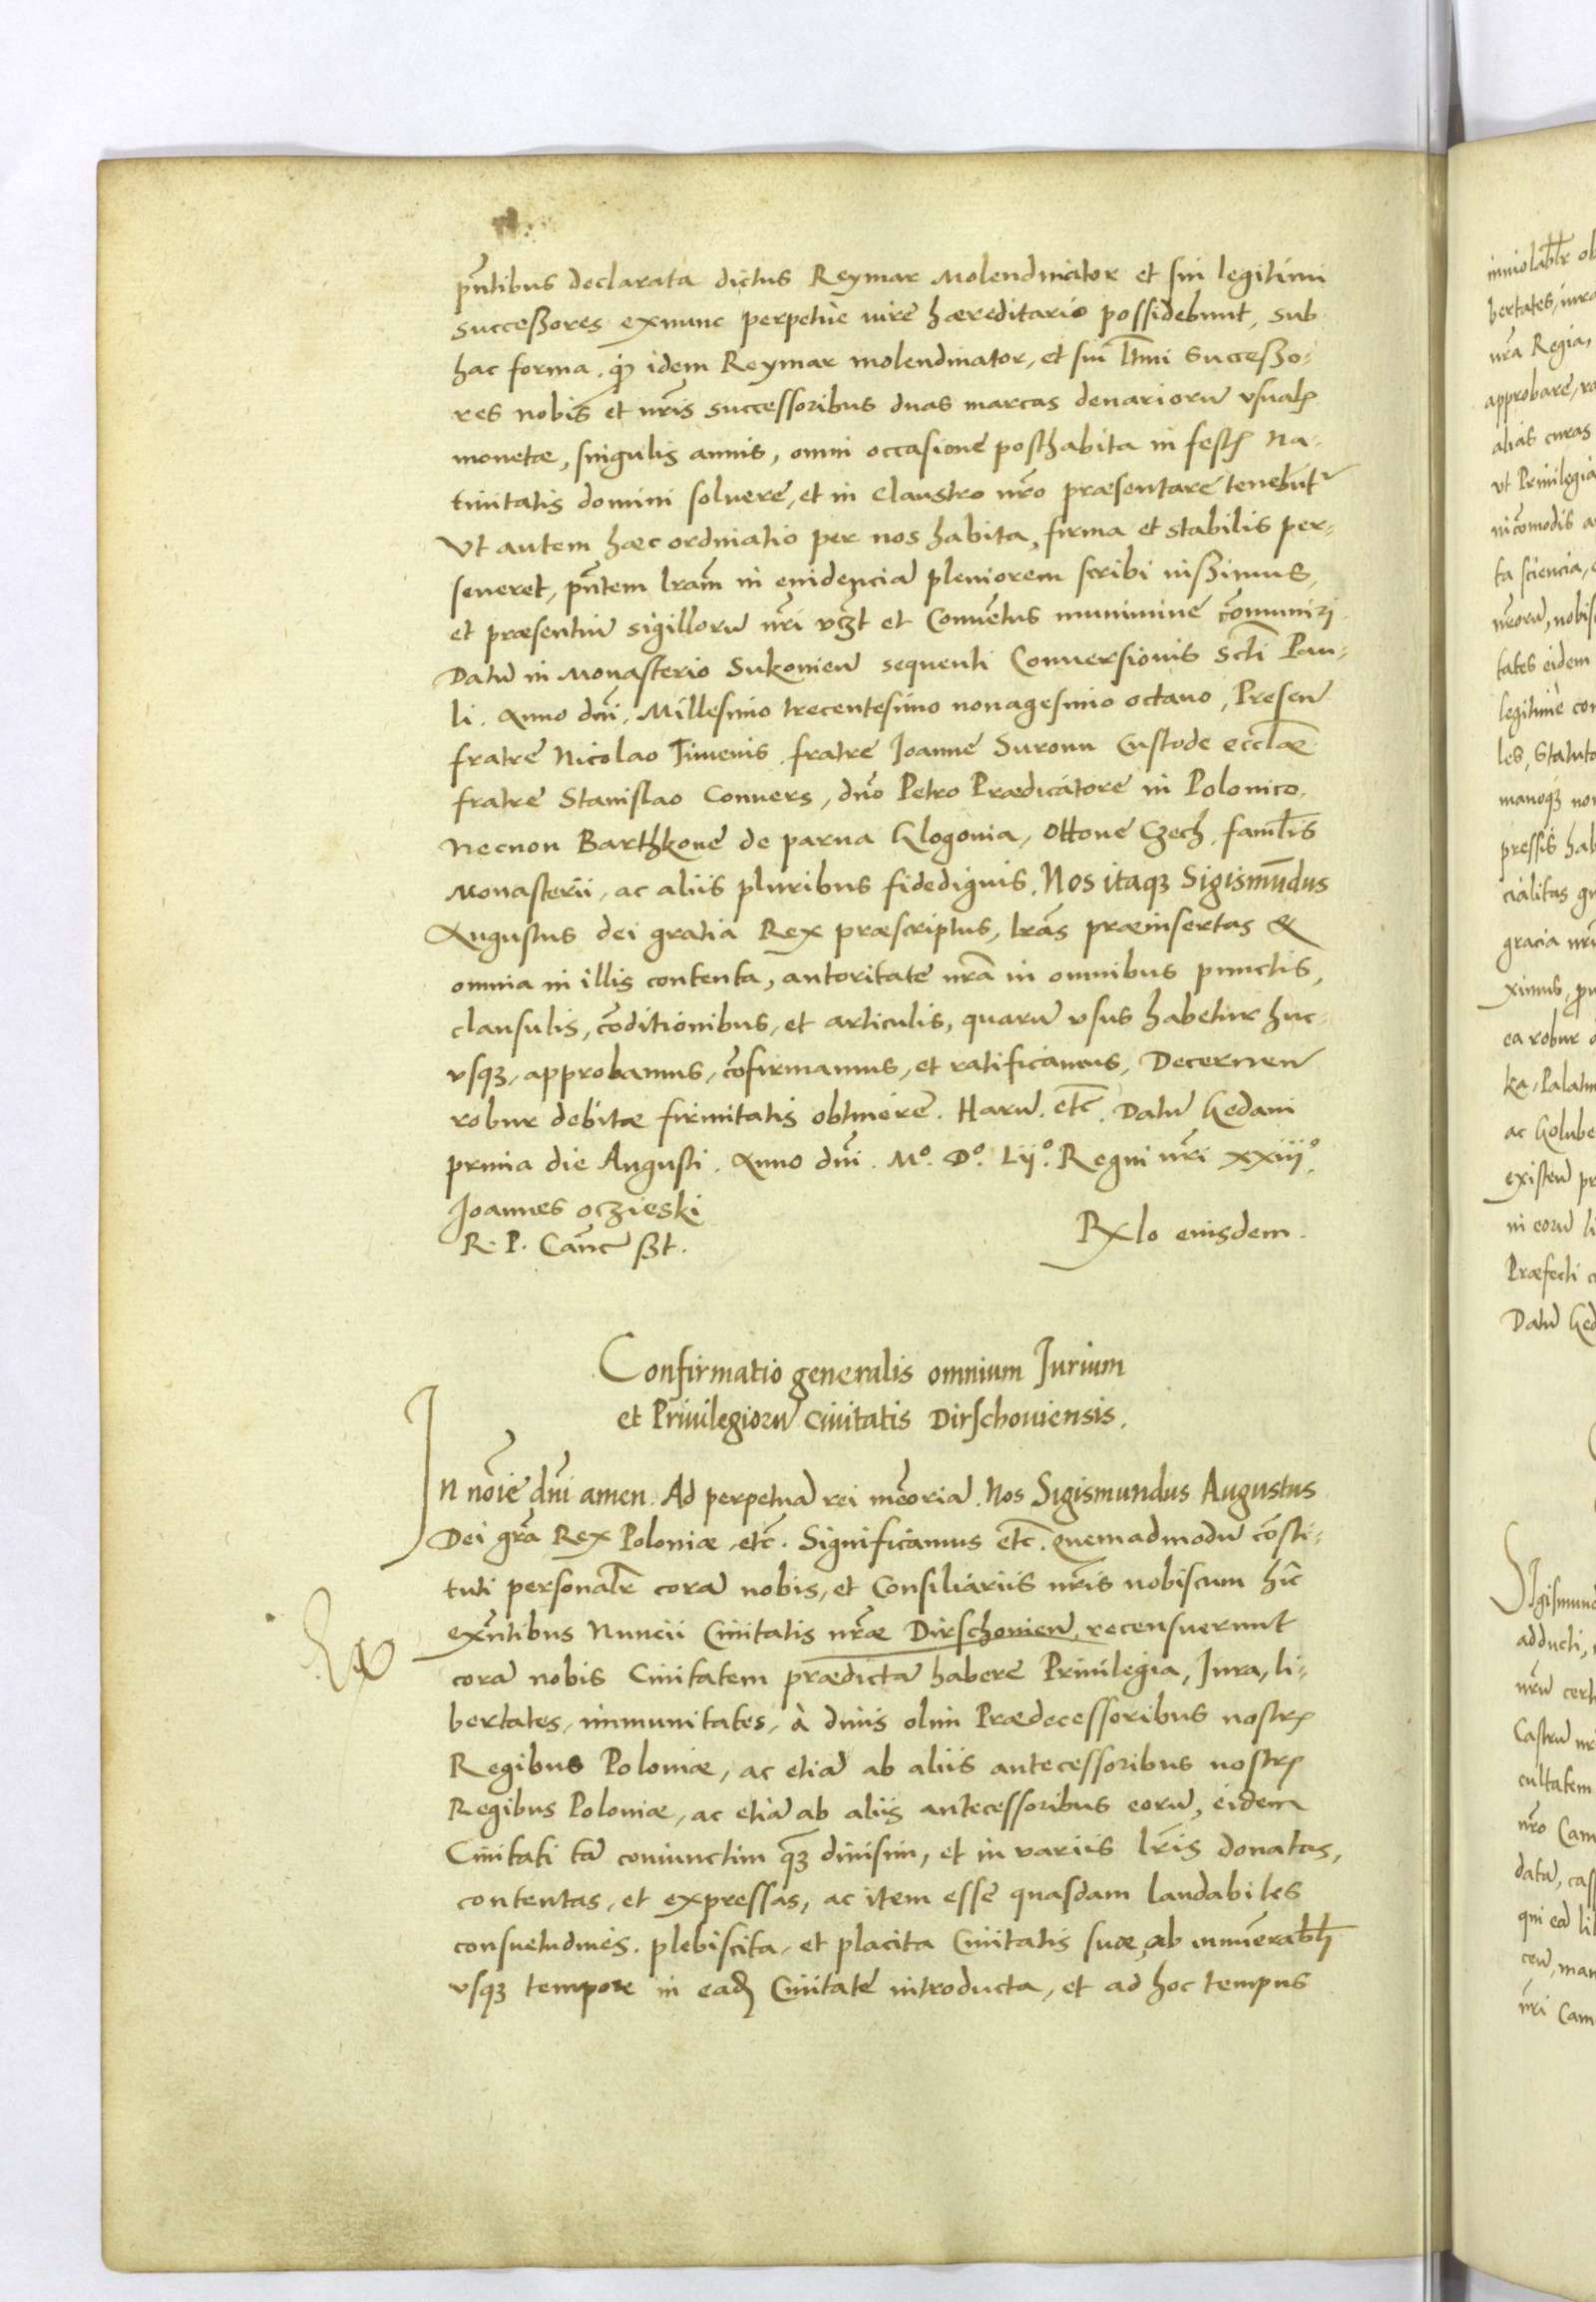 pñtibus declarata dictus Reymar Molendinator et sui legitimi
succeßores exnunc perpetue iure hæreditario possidebunt, sub
hac forma, idem Reymar molendinator, et sui ltimi Succeßo-
res nobis et nr̃is successoribus duas marcas denarioru᷃ vsual
monetæ, singulis annis, omni occasione posthabita in fest Na-
tiuitatis domini soluere, et in Claustro nr̃o præsentare tenebunt
Vt autem hæc ordinatio per nos habita, firma et stabilis per-
seueret, pñtem lr̃am in euidencia᷃ pleniorem scribi iußimus,
et præsentiu᷃ sigilloru᷃ nr̃i vczt et Conue᷃tus munimine co᷃muniri.
Datu᷃ in Monasterio Sukonien᷃ sequenti Conuersionis Scti Pau-
li. Anno dn̄i. Millesimo trecentesimo nonagesimo octauo, Presen᷃
fratre Nicolao Timenis fratre Joanne Suronu Custode ecclæ
fratre Stanislao Conuers, dn̄o Petro Prædicatore in Polonico.
Necnon Barthkone de parua Glogouia, Ottone Czech, familis
Monasterii, ac aliis pluribus fidedignis. Nos itaqꝫ Sigismu᷃dus
Augustus dei gratia Rex præscriptus, lr̃as præinsertas &
omnia in illis contenta, autoritate nr̃a in omnibus punctis,
clausulis, co᷃ditionibus, et articulis, quaru᷃ vsus habetur huc-
vsqꝫ, approbamus, co᷃firmamus, et ratificamus, Decernen᷃
robur debitæ firmitatis obtinere. Haru᷃. etc̄. Datu᷃ Gedani
prima die Augusti. Anno dn̄i. Mº. Dº. Lijº. Regni nr̃i xxiijº.
Joannes oczieski
R. P. Canc᷃ ßt.
Rxlo eiusdem.
Confirmatio generalis omnium Jurium
et Priuilegioru᷃ Ciuitatis Dirschouiensis.
In nōie dn̄i amen. Ad perpetua᷃ rei mēoria᷃. Nos Sigismundus Augustus
Dei gr̃a Rex Poloniæ, etc̄. Significamus etc̄. Quemadmodu᷃ co᷃sti-
tuti personalr cora᷃ nobis, et Consiliariis nr̃is nobiscum hic
exn̄tibus Nuncii Ciuitatis nr̃æ Dirschouien᷃, recensuerunt
cora᷃ nobis Ciuitatem prædicta᷃ habere Priuilegia, Jura, li-
bertates, immunitates, à diuis olim Prædecessoribus nostr
Regibus Poloniæ, ac etia᷃ ab aliis antecessoribus nostr
Regibus Poloniæ, ac etia᷃ ab aliis antecessoribus eoru᷃, eidem
Ciuitati ta᷃ coniunctim qꝫ diuisim, et in variis lr̃is donatas,
contentas, et expressas, ac item esse quasdam laudabiles
consuetudines, plebiscita, et placita Ciuitatis suæ, ab inmu᷃erabli
vsqꝫ tempore in ead Ciuitate introducta, et ad hoc tempus